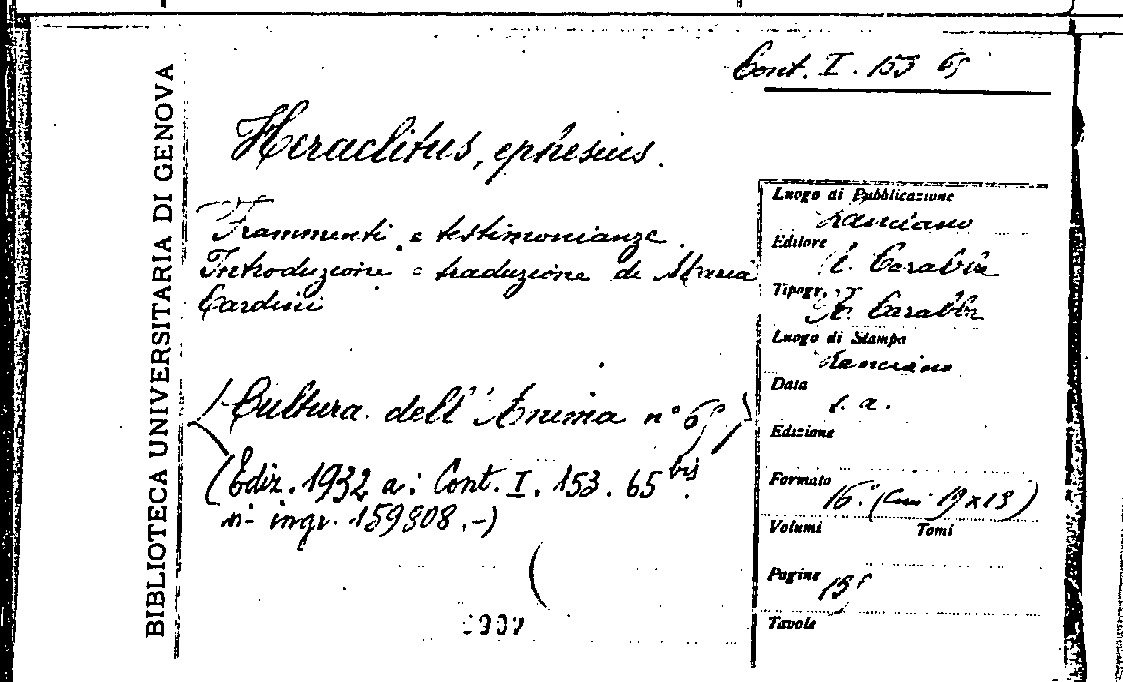 Cont. I. 153 65
BIBLIOTECA UNIVERSITARIA DI GENOVA
Heraclitus, ephesius.
Frammenti e testimonianze.
Introduzione e traduzione di Maria
Cardini
(Cultura dell'Anima n° 65)
(Ediz. 1932 a: Cont. I. 153. 65 bis.
n. ingr. 159308.-)
Luogo di Pubblicazione
Lanciano
Editore
R. Carabba
Tipogr.
R. Carabba
Luogo di Stampa
Lanciano
Data
s. a.
Edizione
Formato
16° (cm 19x13)
Volumi Tomi
Pagine
Tavole